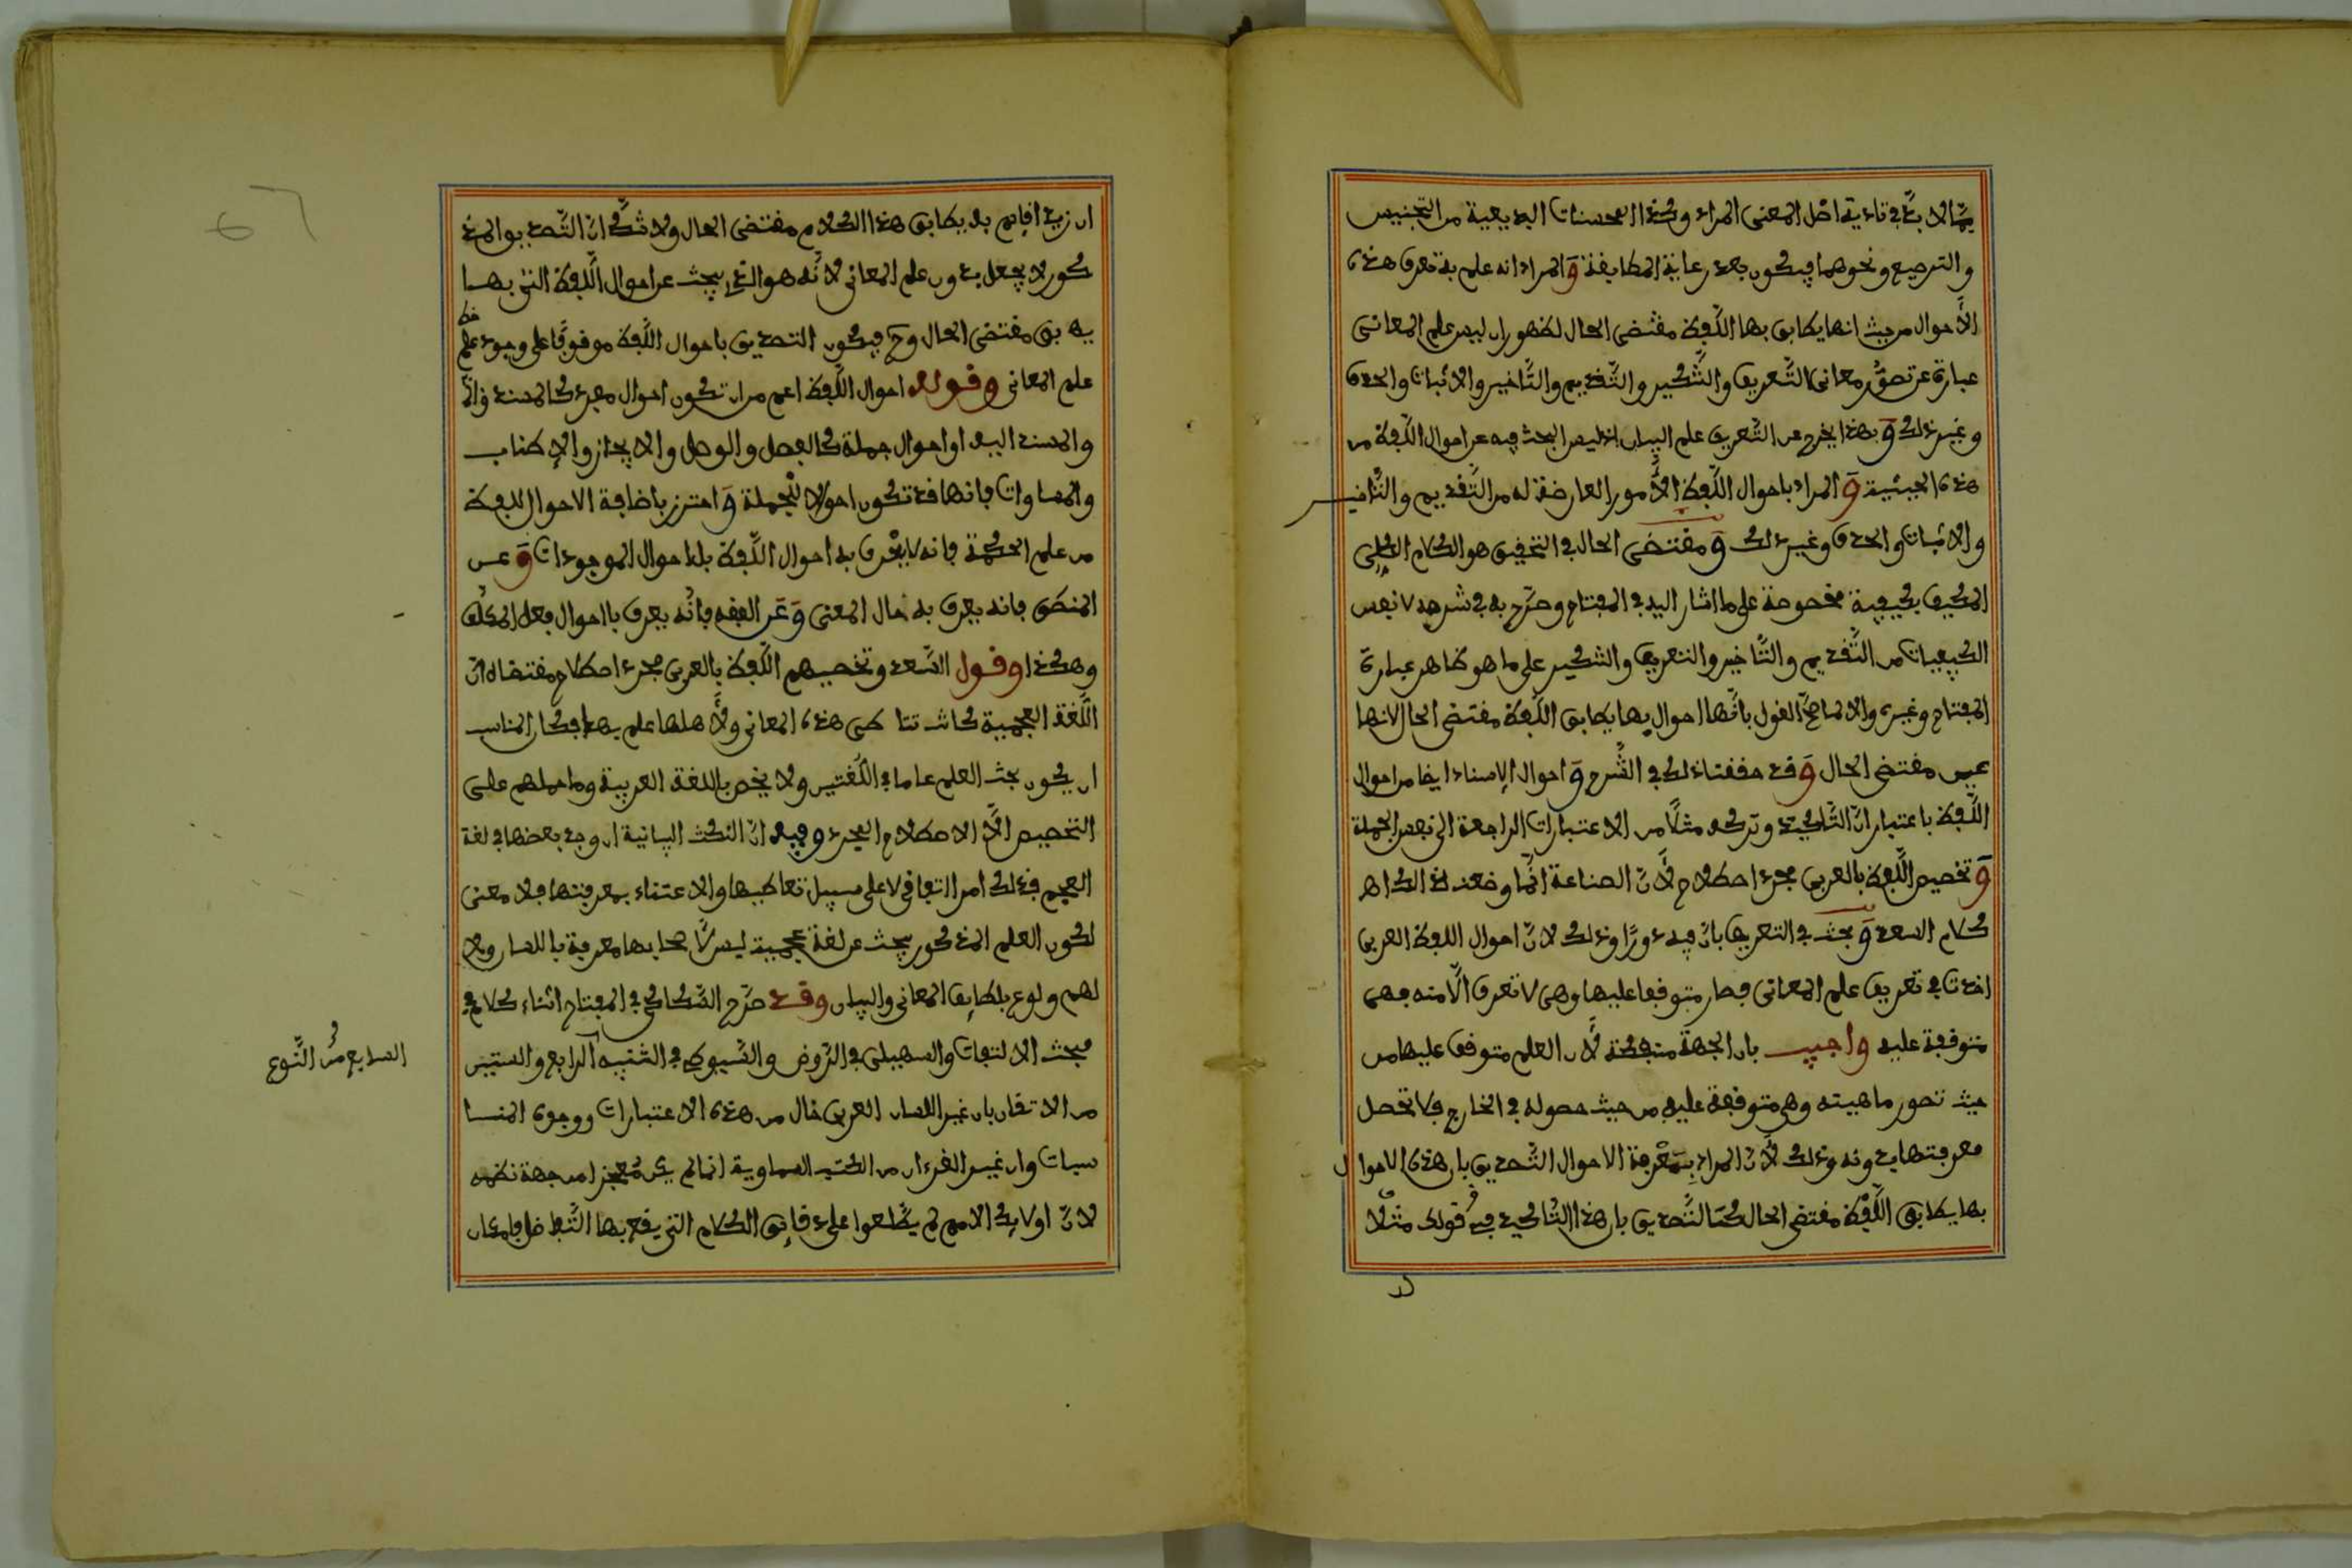 مما لا بد في تادية اصل المعنى المراد وكذا المحسنات البديعية من التجنيس
والترصيع ونحوهما فيكون بعد رعاية المطابقة والمراد انه علم به تعرف هذه
الاحوال من حيث انها يطابق بها اللفظ مقتضى الحال لظهور ان ليس علم المعاني
عبارة عن تصور معاني التعريف والتنكير والتقديم والتاخير والاثبات والحذف
وغير ذلك وبهذا يخرج عن التعريف علم البيان اذ ليس البحث فيه عن احوال اللفظ من
هذه الحيثية والمراد باحوال اللفظ الامور العارضة له من التقديم والتاخير
والاثبات والحذف وغير ذلك ومقتضى الحال في التحقيق هو الكلام الكلي
المكيف بكيفية مخصوصة على ما اشار اليه في المفتاح وصرح به في شرحه لا نفس
الكيفيات من التقديم والتاخير والتعريف والتنكير على ما هو ظاهر عبارة
المفتاح وغيره والا لما صح القول بانها احوال بها يطابق اللفظ مقتضى الحال لانها
عين مقتضى الحال وقد حققنا ذلك في الشرح واحوال الاسناد ايضا من احوال
اللفظ باعتبار ان التاكيد وتركه مثلا من الاعتبارات الراجعة الى نفس الجملة
وتخصيص اللفظ بالعربي مجرد اصطلاح لان الصناعة انما وضعت لذلك اهـ
كلام السعد وبحث في التعريف بان فيه دورا وذلك لان احوال اللفظ العربي
اخذت في تعريف علم المعاني فصار متوقفا عليها وهي لا تعرف الا منه فهي
متوقفة عليه واجيب بان الجهة منفكة لان العلم متوقف عليها من
حيث تصور ماهيته وهي متوقفة عليه من حيث حصوله في الخارج فلا تحصل
معرفتها بدونه وذلك لان المراد بمعرفة الاحوال التصديق بان هذه الاحوال
بها يطابق اللفظ مقتضى الحال كالتصديق بان هذا التاكيد في قولك مثلا
ان زيدا قايم به يطابق هذا الكلام مقتضى الحال ولا شك ان التصديق المذ
كور لا يحصل بدون علم المعاني لانه هو الذي يبحث عن احوال اللفظ التي بها
يطابق مقتضى الحال وح فيكون التصديق باحوال اللفظ موقوفا على وجود علم
علم المعاني وقوله احوال اللفظ اعم من ان تكون احوال مفرد كالمسند
والمسند اليه او احوال جملة كالفصل والوصل والايجاز والاطناب
والمساوات فانها قد تكون احوالا للجملة واحترز باضافة الاحوال للفظ
من علم الحكمة فانه لا يعرف به احوال اللفظ بل احوال الموجودات وعن
المنطق فانه يعرف به حال المعنى وعن الفقه فانه يعرف به احوال فعل المكلف
وهكذا وقول السعد وتخصيصهم اللفظ بالعربي مجرد اصطلاح مقتضاه ان
اللغة العجمية كانت تتاتى هذه المعاني ولاهلها علم بها فكان المناسب
ان يكون بحث العلم عاما في اللغتين ولا يخص باللغة العربية وما حملهم على
التخصيص الا الاصطلاح المجرد وفيه ان النكت البيانية ان وجد بعضها في لغة
العجم فذلك امر اتفاقي لا على سبيل تعاطيها والاعتناء بمعرفتها فلا معنى
لكون العلم المذكور يبحث عن لغة عجمية ليس لاصحابها معرفة باللسان ولا
لهم ولوع بلطايف المعاني والبيان وقد صرح السكاكي في المفتاح اثناء كلام في
مبحث الالتفات والسهيلي في الروض والسيوطي في التنبيه الرابع والستين
من الاتقان بان غير اللسان العربي خال من هذه الاعتبارات ووجوه المنا
سبات وان غير القرءان من الكتب السماوية انما لم يكن معجزا من جهة نظمه
لان اولايك الامم لم يطلعوا على دقايق الكلام التي يقع بها التفاضل
السابع من النوع
67